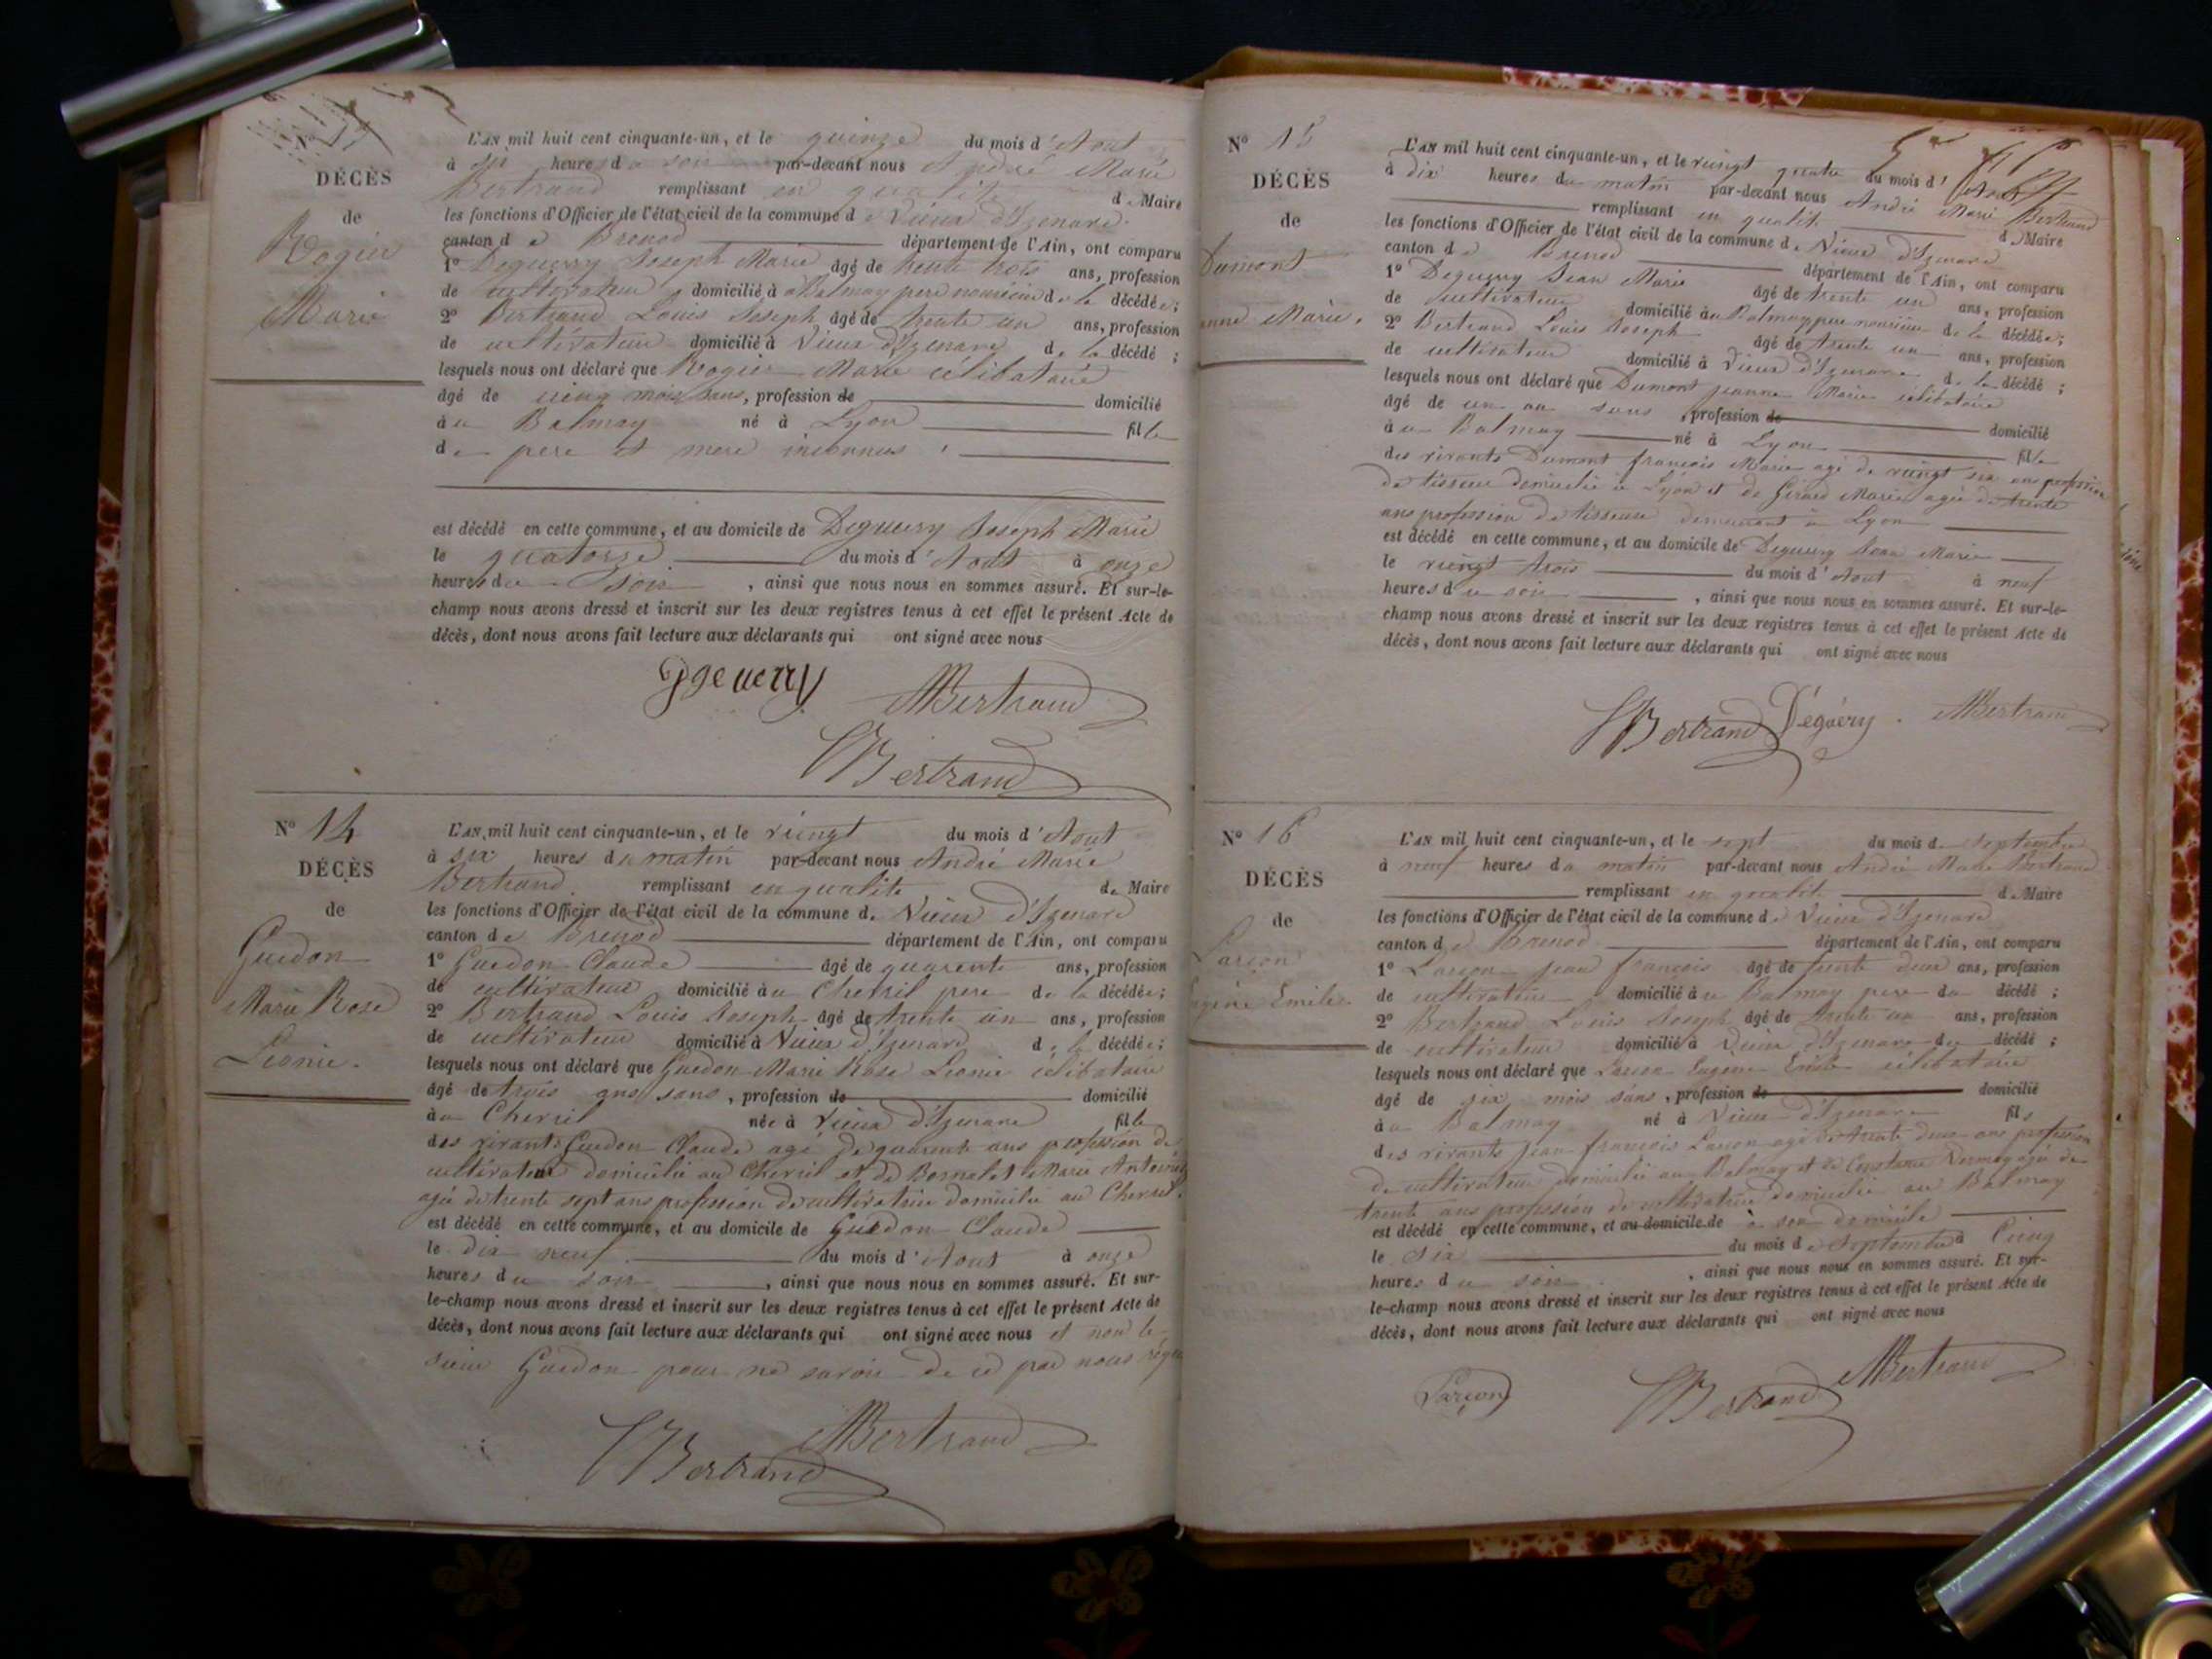 N°
DÉCÈS
de
Rogier
Marie
L'AN mil huit cent cinquante-un, et le quinze du mois d'Aout
à six heures du soir par-devant nous André Marie
Bertrand remplissant en qualité de Maire
les fonctions d'Officier de l'état civil de la commune de Vieux d'Izenave
canton de Brenod département de l'Ain, ont comparu
1° Deguerry Joseph Marie âgé de trente trois ans, profession
de cultivateur domicilié à Balmay pere nouricier de la décédée;
2° Bertrand Louis Joseph âgé de trente un ans, profession
de cultivateur domicilié à Vieux d'Izenave de la décédé ;
lesquels nous ont déclaré que Rogier Marie célibataire
âgé de cinq mois sans, profession de domicilié
à au Balmay né à Lyon fille
de pere et mere inconnus
est décédé en cette commune, et au domicile de Deguerry Joseph Marie
le quatorze du mois d'Aout à onze
heures du soir, ainsi que nous nous en sommes assuré. Et sur-le-
champ nous avons dressé et inscrit sur les deux registres tenus à cet effet le présent Acte de
décès, dont nous avons fait lecture aux déclarants qui ont signé avec nous
Bertrand
Bertrand
N° 14
DÉCÈS
de
Guedon
Marie Rose
Léonie.
L'AN mil huit cent cinquante-un, et le vingt du mois d'Aout
à six heures du matin par-devant nous André Marie
Bertrand remplissant en qualité de Maire
les fonctions d'Officier de l'état civil de la commune de Vieux d'Izenave
canton de Brenod département de l'Ain, ont comparu
1° Guedon Claude âgé de quarente ans, profession
de cultivateur domicilié au Chevril pere de la décédée;
2° Bertrand Louis Joseph âgé de trente un ans, profession
de cultivateur domicilié à Vieux d'Izenave de la décédée;
lesquels nous ont déclaré que Guedon Marie Rose Léonie célibataire
âgé de trois ans sans, profession de domicilié
à au Chevril née à Vieux d'Izenave fille
des vivants Guedon Claude agé de quarente ans profession de
cultivateur domicilié au Chevril et de Marie
agée de trente sept ans profession de cultivatrice domicilié au Chevril.
est décédé en cette commune, et au domicile de Guedon Claude
le dix neuf du mois d'Aout à onze
heures du soir, ainsi que nous nous en sommes assuré. Et sur-
le-champ nous avons dressé et inscrit sur les deux registres tenus à cet effet le présent Acte de
décès, dont nous avons fait lecture aux déclarants qui ont signé avec nous et non le
sieur Guedon pour ne savoir de ce par nous
Bertrand
Bertrand
N° 15
DÉCÈS
de
Dumont
anne Marie.
L'AN mil huit cent cinquante-un, et le vingt quatre du mois d'Aout
à dix heures du matin par-devant nous André Marie Bertrand
remplissant en qualité de Maire
les fonctions d'Officier de l'état civil de la commune de Vieux d'Izenave
canton de Brenod département de l'Ain, ont comparu
1° Deguerry Jean Marie âgé de trente un ans, profession
de cultivateur domicilié au Balmay pere nouricier de la décédée;
2° Bertrand Louis Joseph âgé de trente un ans, profession
de cultivateur domicilié à Vieux d'Izenave de la décédé ;
lesquels nous ont déclaré que Dumont jeanne Marie célibataire
âgé de un an sans, profession de domicilié
à au Balmay né à Lyon fille
des vivants Dumont françois Marie agé de vingt six ans profession
de tisseur domicilié à Lyon et de Girard Marie agée de trente
ans profession de tisseuse demeurant à Lyon
est décédé en cette commune, et au domicile de Deguerry Jean Marie
le vingt trois du mois d'Aout à neuf
heures du soir, ainsi que nous nous en sommes assuré. Et sur-le-
champ nous avons dressé et inscrit sur les deux registres tenus à cet effet le présent Acte de
décès, dont nous avons fait lecture aux déclarants qui ont signé avec nous
Bertrand Déguery Bertrand
N° 16
DÉCÈS
de
Larçon
Emile.
L'AN mil huit cent cinquante-un, et le sept du mois de Septembre
à neuf heures du matin par-devant nous André Marie Bertrand
remplissant en qualité de Maire
les fonctions d'Officier de l'état civil de la commune de Vieux d'Izenave
canton de Brenod département de l'Ain, ont comparu
1° Larçon jean françois âgé de trente deux ans, profession
de cultivateur domicilié à au Balmay pere du décédé ;
2° Bertrand Louis Joseph âgé de trente un ans, profession
de cultivateur domicilié à Vieux d'Izenave du décédé ;
lesquels nous ont déclaré que Larçon Eugene Emile célibataire
âgé de six mois sans, profession de domicilié
à au Balmay né à Vieux d'Izenave fils
des vivants jean françois Larçon agé de trente deux ans profession
de cultivateur domicilié au Balmay et de agée de
trente ans profession de cultivatrice domicilié au Balmay
est décédé en cette commune, et au domicile de à son domicile
le six du mois de Septembre à Cinq
heures du soir, ainsi que nous nous en sommes assuré. Et sur-
le-champ nous avons dressé et inscrit sur les deux registres tenus à cet effet le présent Acte de
décès, dont nous avons fait lecture aux déclarants qui ont signé avec nous
Larçon Bertrand Bertrand